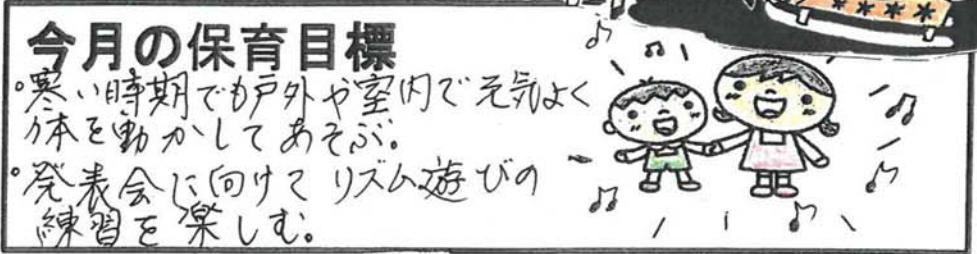 今月の保育目標
°寒い時期でも戸外や室内で元気よく
体を動かしてあそぶ。
°発表会に向けてリズム遊びの
練習を楽しむ。